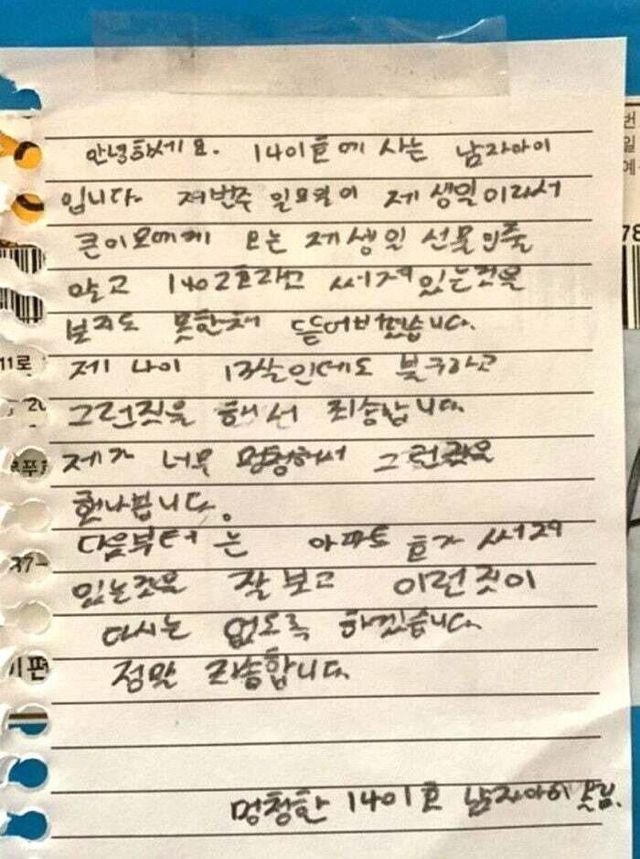 안녕하세요. 1401호에 사는 남자아이
입니다. 저번주 일요일이 제 생일이라서
큰이모에게 오는 제생일 선물인줄
알고 1402호라고 써져있는것을
보지도 못한채 뜯어버렸습니다.
제 나이 13살인데도 불구하고
그런짓을 해서 죄송합니다.
제가 너무 멍청해서 그런짓을
했나봅니다.
다음부터는 아파트 호가 써져
있는것을 잘보고 이런짓이
다시는 없도록 하겠습니다.
정말 죄송합니다.
멍청한 1401호 남자아이 올림.
번
일
예
78
11로
37-
편